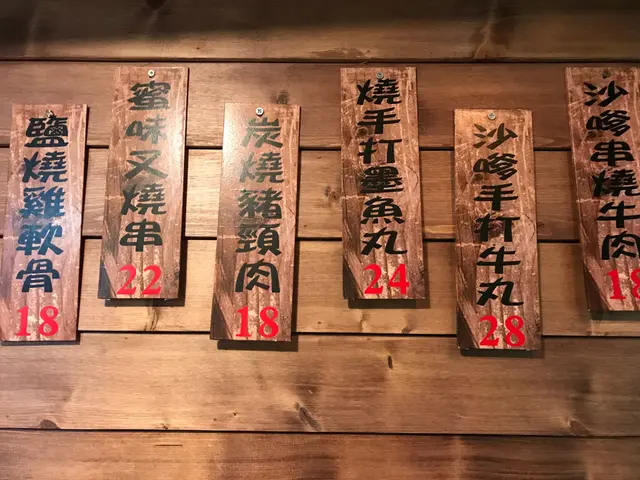 鹽燒雞軟骨
18
蜜味叉燒串
22
炭燒豬頸肉
18
燒手打墨魚丸
24
沙嗲手打牛丸
28
沙嗲串燒牛肉
18